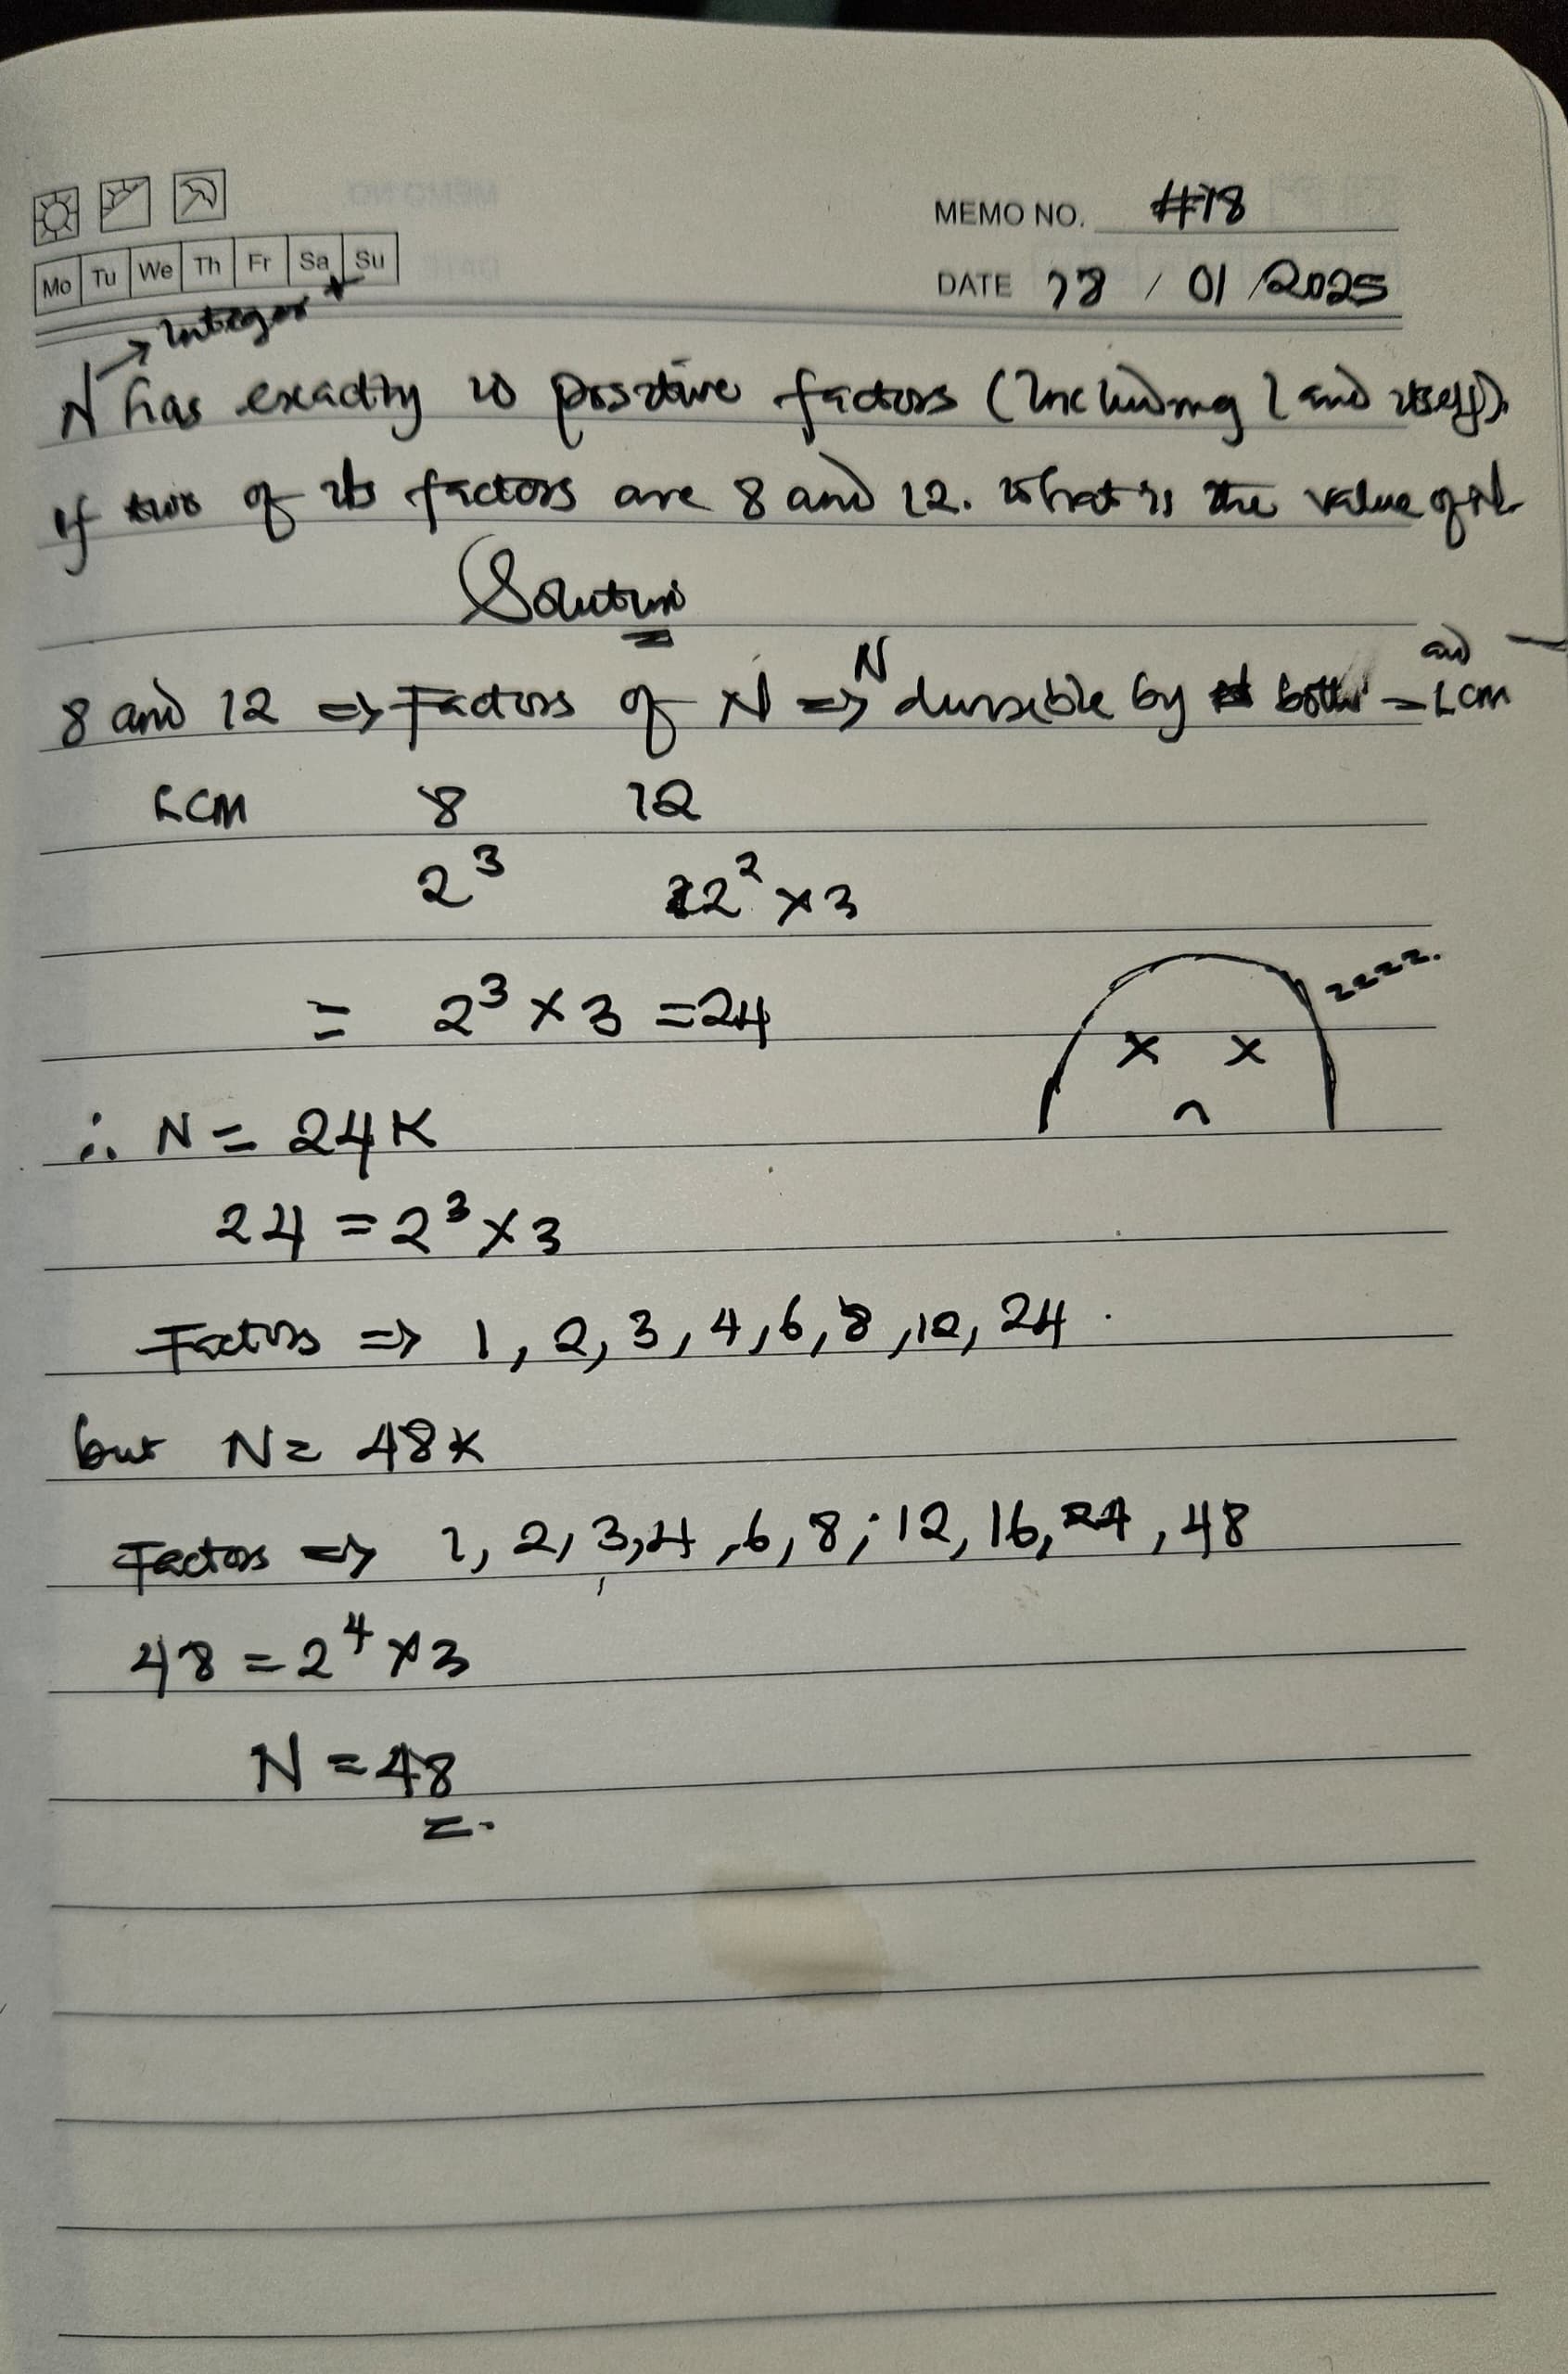 MEMO NO. #18
Mo Tu We Th Fr Sa Su
DATE 18 / 01 / 2025
→ Integer +
N has exactly 10 positive factors (Including 1 and itself).
If two of its factors are 8 and 12. What is the value of N
Solution
and
8 and 12 => Factors of N => N divisible by both = LCM
LCM 8 12
2³ 2² × 3
= 2³ × 3 = 24
zzzz.
x x
∴ N = 24K
24 = 2³ × 3
Factors => 1, 2, 3, 4, 6, 8, 12, 24.
but N = 48K
Factors => 1, 2, 3, 4, 6, 8, 12, 16, 24, 48
48 = 2⁴ × 3
N = 48